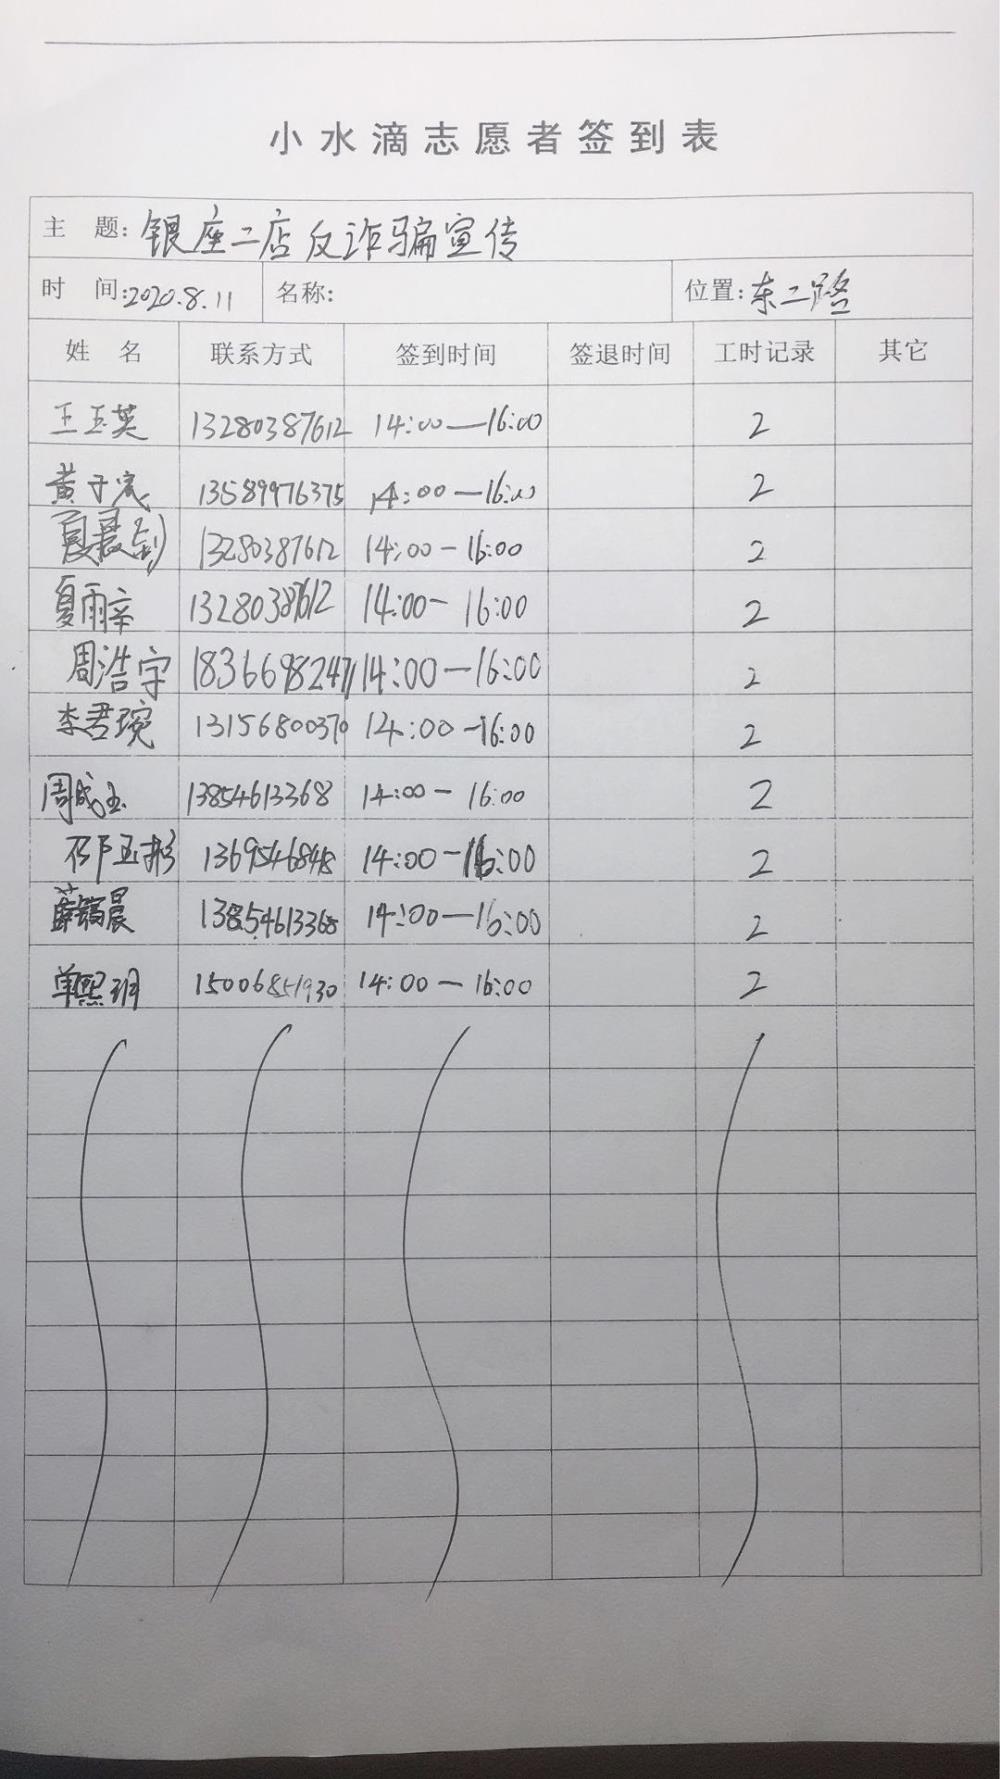 小水滴志愿者签到表
主 题: 银座二店反诈骗宣传
时 间:2020.8.11 名称: 位置:东二路
姓 名 联系方式 签到时间 签退时间 工时记录 其它
王玉英 13280387612 14:00—16:00 2
黄子宸 13589976375 14:00—16:00 2
夏晟钊 13280387612 14:00-16:00 2
夏雨辛 13280387612 14:00-16:00 2
周浩宇 18366982471 14:00-16:00 2
李君琬 13156800370 14:00-16:00 2
周成玉 13854613368 14:00-16:00 2
邵玉彬 1369546848 14:00-16:00 2
薛镐晨 13854613368 14:00—16:00 2
单熙玥 15006851930 14:00—16:00 2